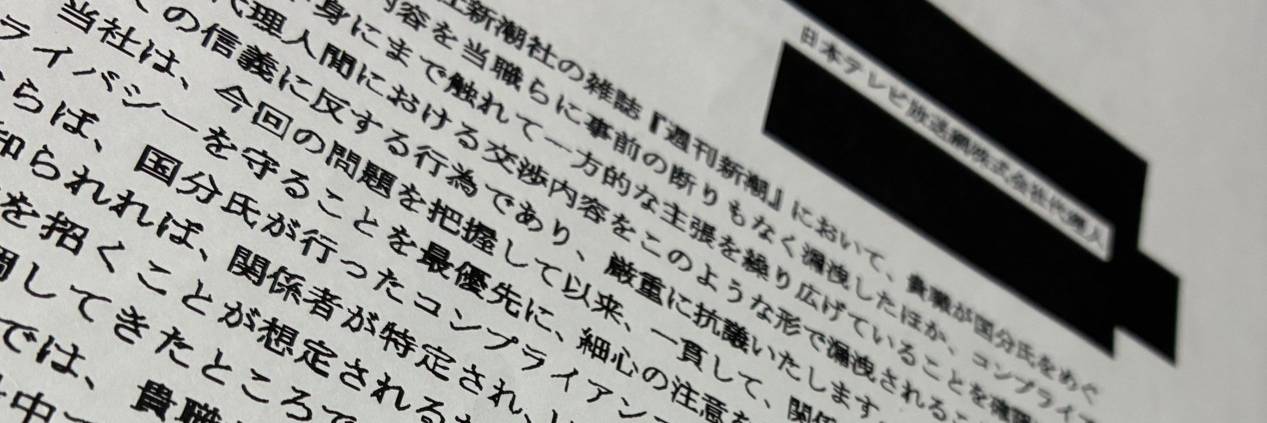 日本テレビ放送網株式会社代理人
社新潮社の雑誌『週刊新潮』において、貴職が国分氏をめぐ
内容を当職らに事前の断りもなく漏洩したほか、コンプライア
身にまで触れて一方的な主張を繰り広げていることを確認
代理人間における交渉内容をこのような形で漏洩されるこ
ての信義に反する行為であり、厳重に抗議いたします
当社は、今回の問題を把握して以来、一貫して、関係
ライバシーを守ることを最優先に、細心の注意を
らば、国分氏が行ったコンプライアンス
知られれば、関係者が特定され、
を招くことが想定される
調してきたところで
では、貴職
中